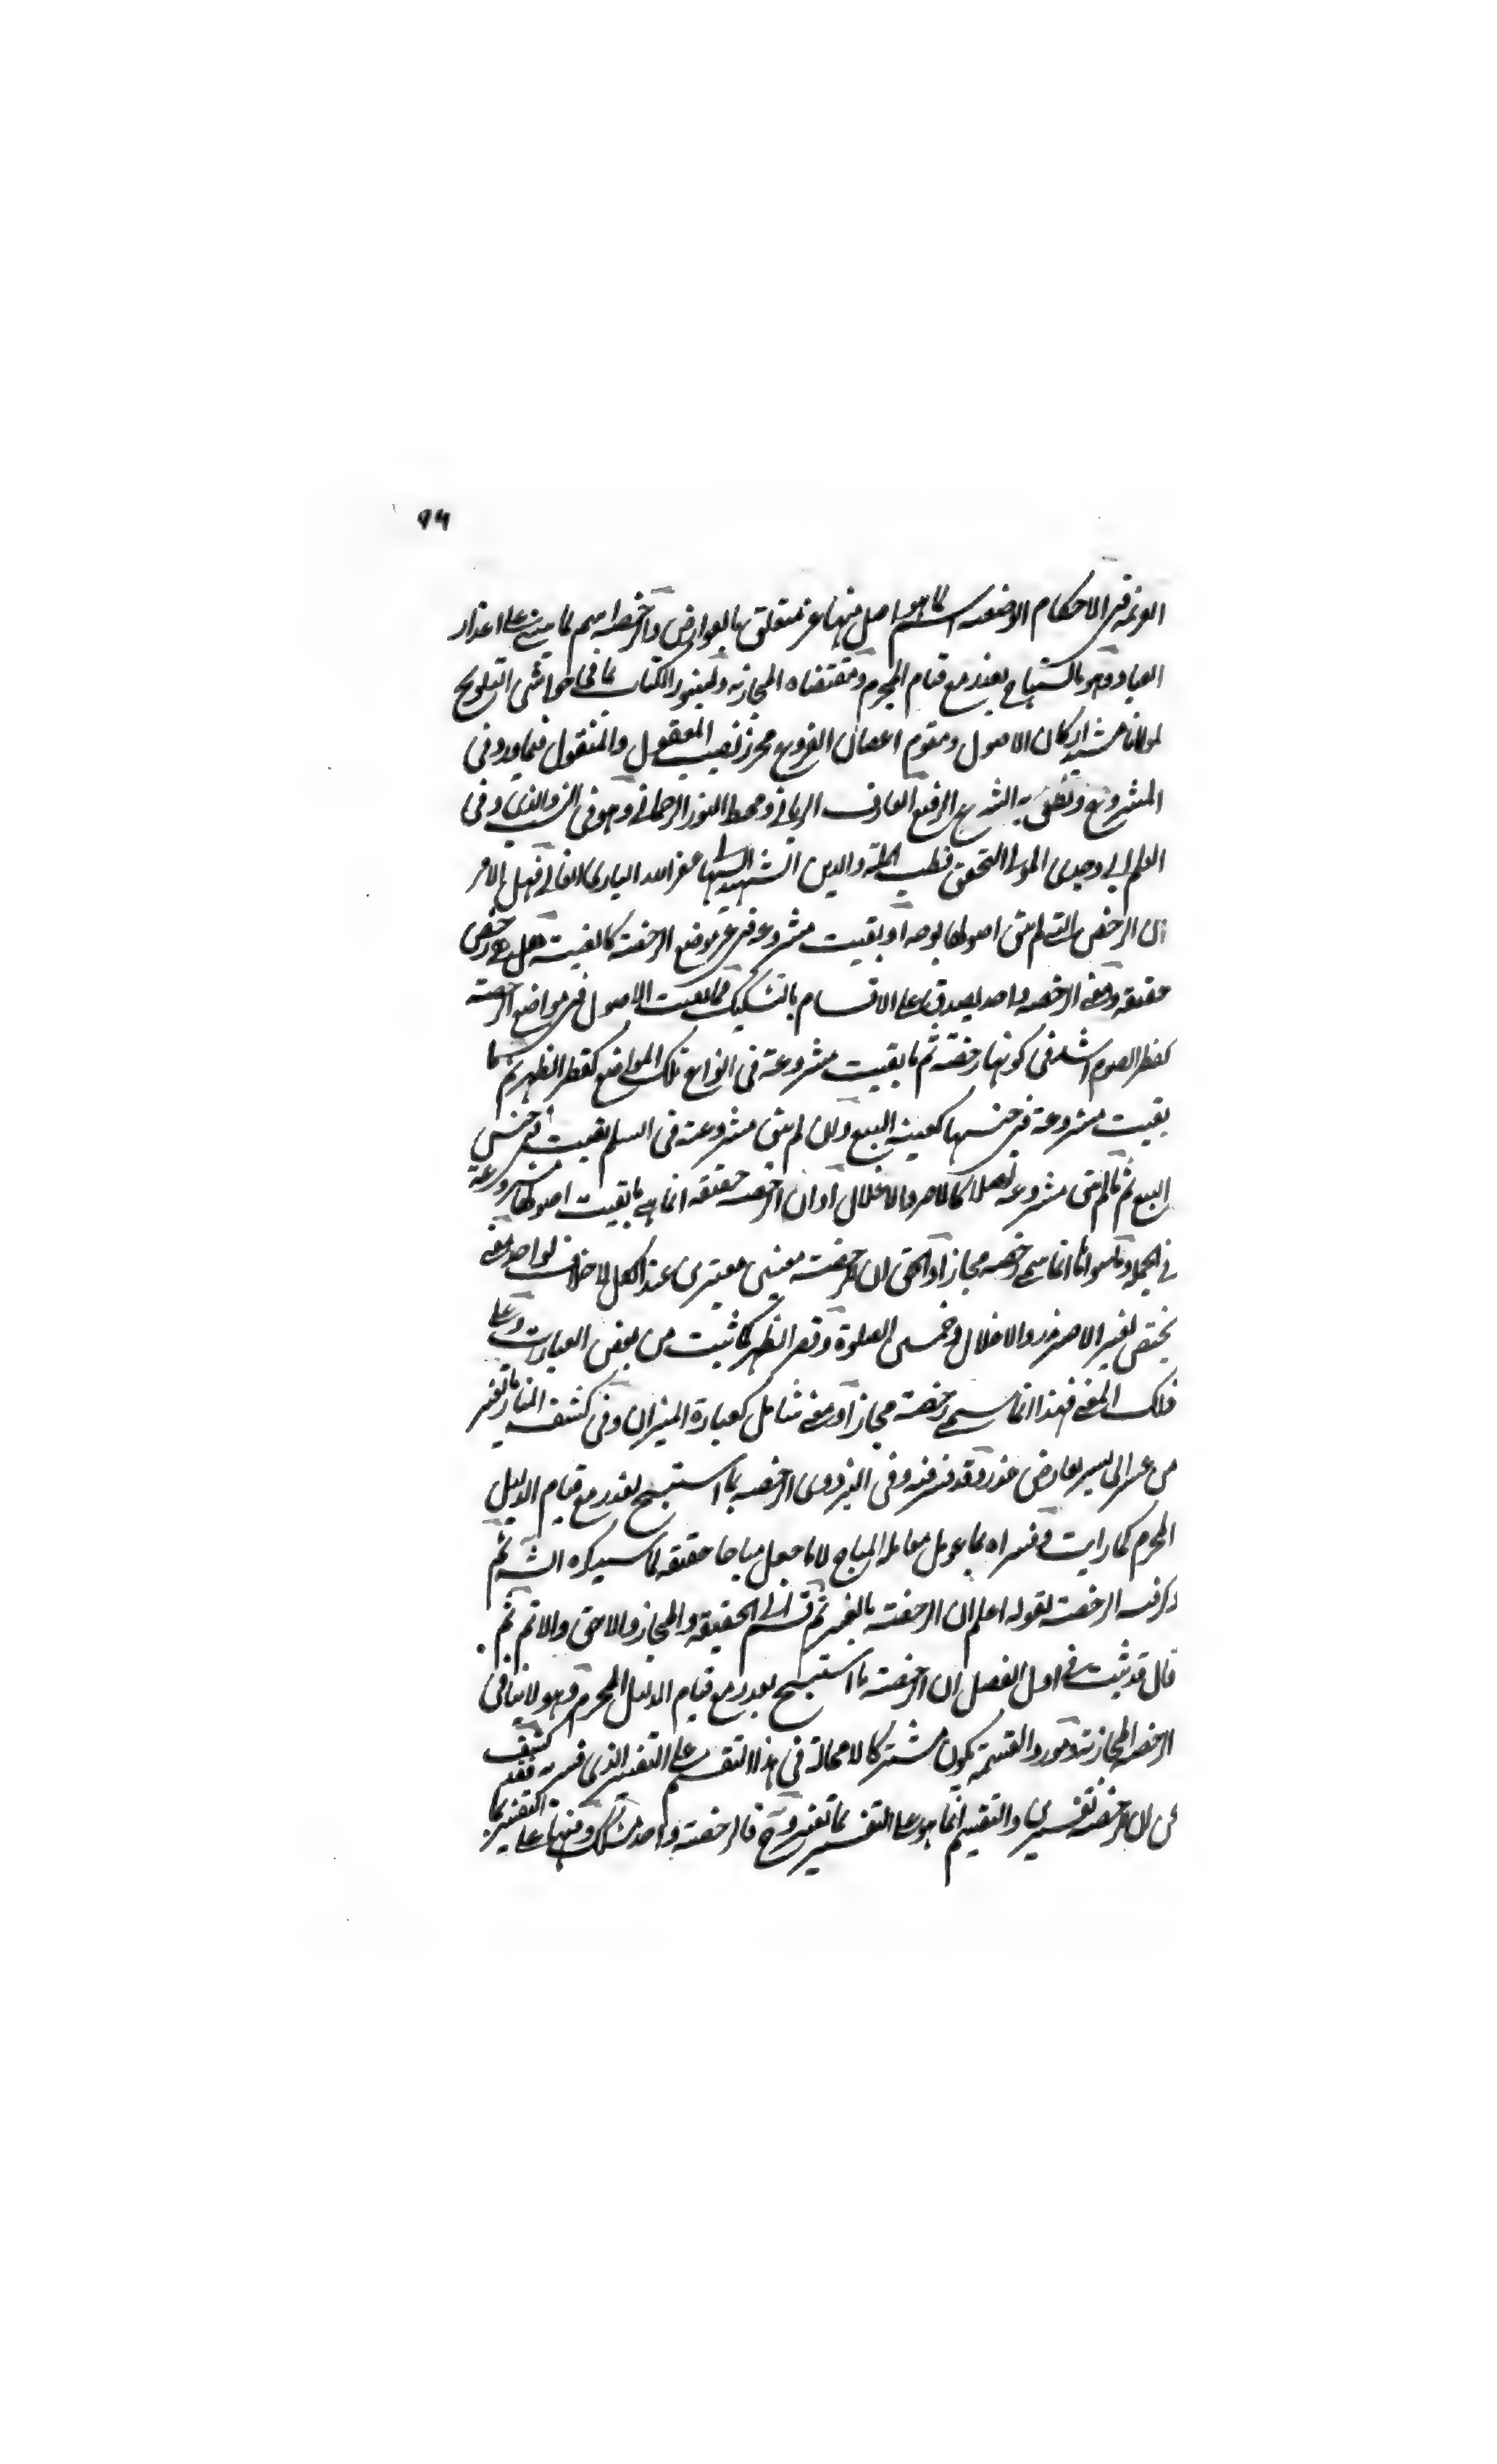 ٩٦
العزيمة في الاحكام الوضعية اسم لما هو اصل منها غير متعلق بالعوارض والرخصة اسم لما بني على اعذار
العباد وهو ما يستباح بعذر مع قيام المحرم ومقتضاه المجازية وتفسير الكتاب كما في حواشي التلويح
لمولانا مشيد اركان الاصول ومقوم اغصان الفروع محرز نصيب المعقول والمنقول فيما ورد في
المشروع ونطق به الشرع الرفيع العارف الرباني ومهبط النور الرحماني وهو في النسب والدي وفي
العلم ابي وجدي المولى المحقق قطب الملة والدين الشهيد السهالي غفر الله الباري الغافر قيل الامر
ان الرخص التي لم تبق اصولها بوجه او بقيت مشروعة في غير موضع الرخصة كالعينية هل هي رخص
حقيقة ومعنى الرخصة واحد يصدق على الاقسام بالتشكيك فما بقيت الاصول في مواضع الرخصة
كفطر الصوم اشد في كونها رخصة ثم ما بقيت مشروعة في انواع تلك المواضع كقصر الظهر ثم ما
بقيت مشروعة في جنسها كعينية البيع وان لم تبق مشروعة في السلم بقيت في جنس
البيع ثم ما لم تبق مشروعة اصلا كالاصر والاغلال او ان الرخصة حقيقة انما هي ما بقيت اصولها مشروعة
في الجملة وما سواها انما سمي رخصة مجازا والحق ان للرخصة معنيين معتبرين عند الكل لا خلاف لواحد معنى
يختص بغير الاصر والاغلال وخمسين الصلوة وقصر الظهر كما ثبت من بعض العبارات وعلى
ذلك المعنى فهذا انما سمي رخصة مجازا ومعنى شامل كعبارة الميزان وفي كشف المنار ما تغير
من عسر الى يسر بعارض عذر وقد فسر فيه وفي البزدوي الرخصة بما استبيح بعذر مع قيام الدليل
المحرم كما رايت وفسراه بما عومل معاملة المباح لا ما جعل مباحا حقيقة كما سيذكره الش ثم
ذكر فيه الرخصة بقوله اعلم ان الرخصة ما تغير ثم قسم الى الحقيقة والمجاز والاحق والاتم ثم
قال قد ثبت في اول الفصل ان الرخصة ما استبيح بعذر مع قيام الدليل المحرم وهو لا ينافي
الرخصة المجازية ومورد القسمة يكون مشتركا لا محالة في هذا التقسيم على التفسير الذي فسر به فقد كشف
عن ان للرخصة تفسيرين والتقسيم انما هو على التفسير بما تغير وح فالرخصة واحد مشكك ومنها على التفسير بما